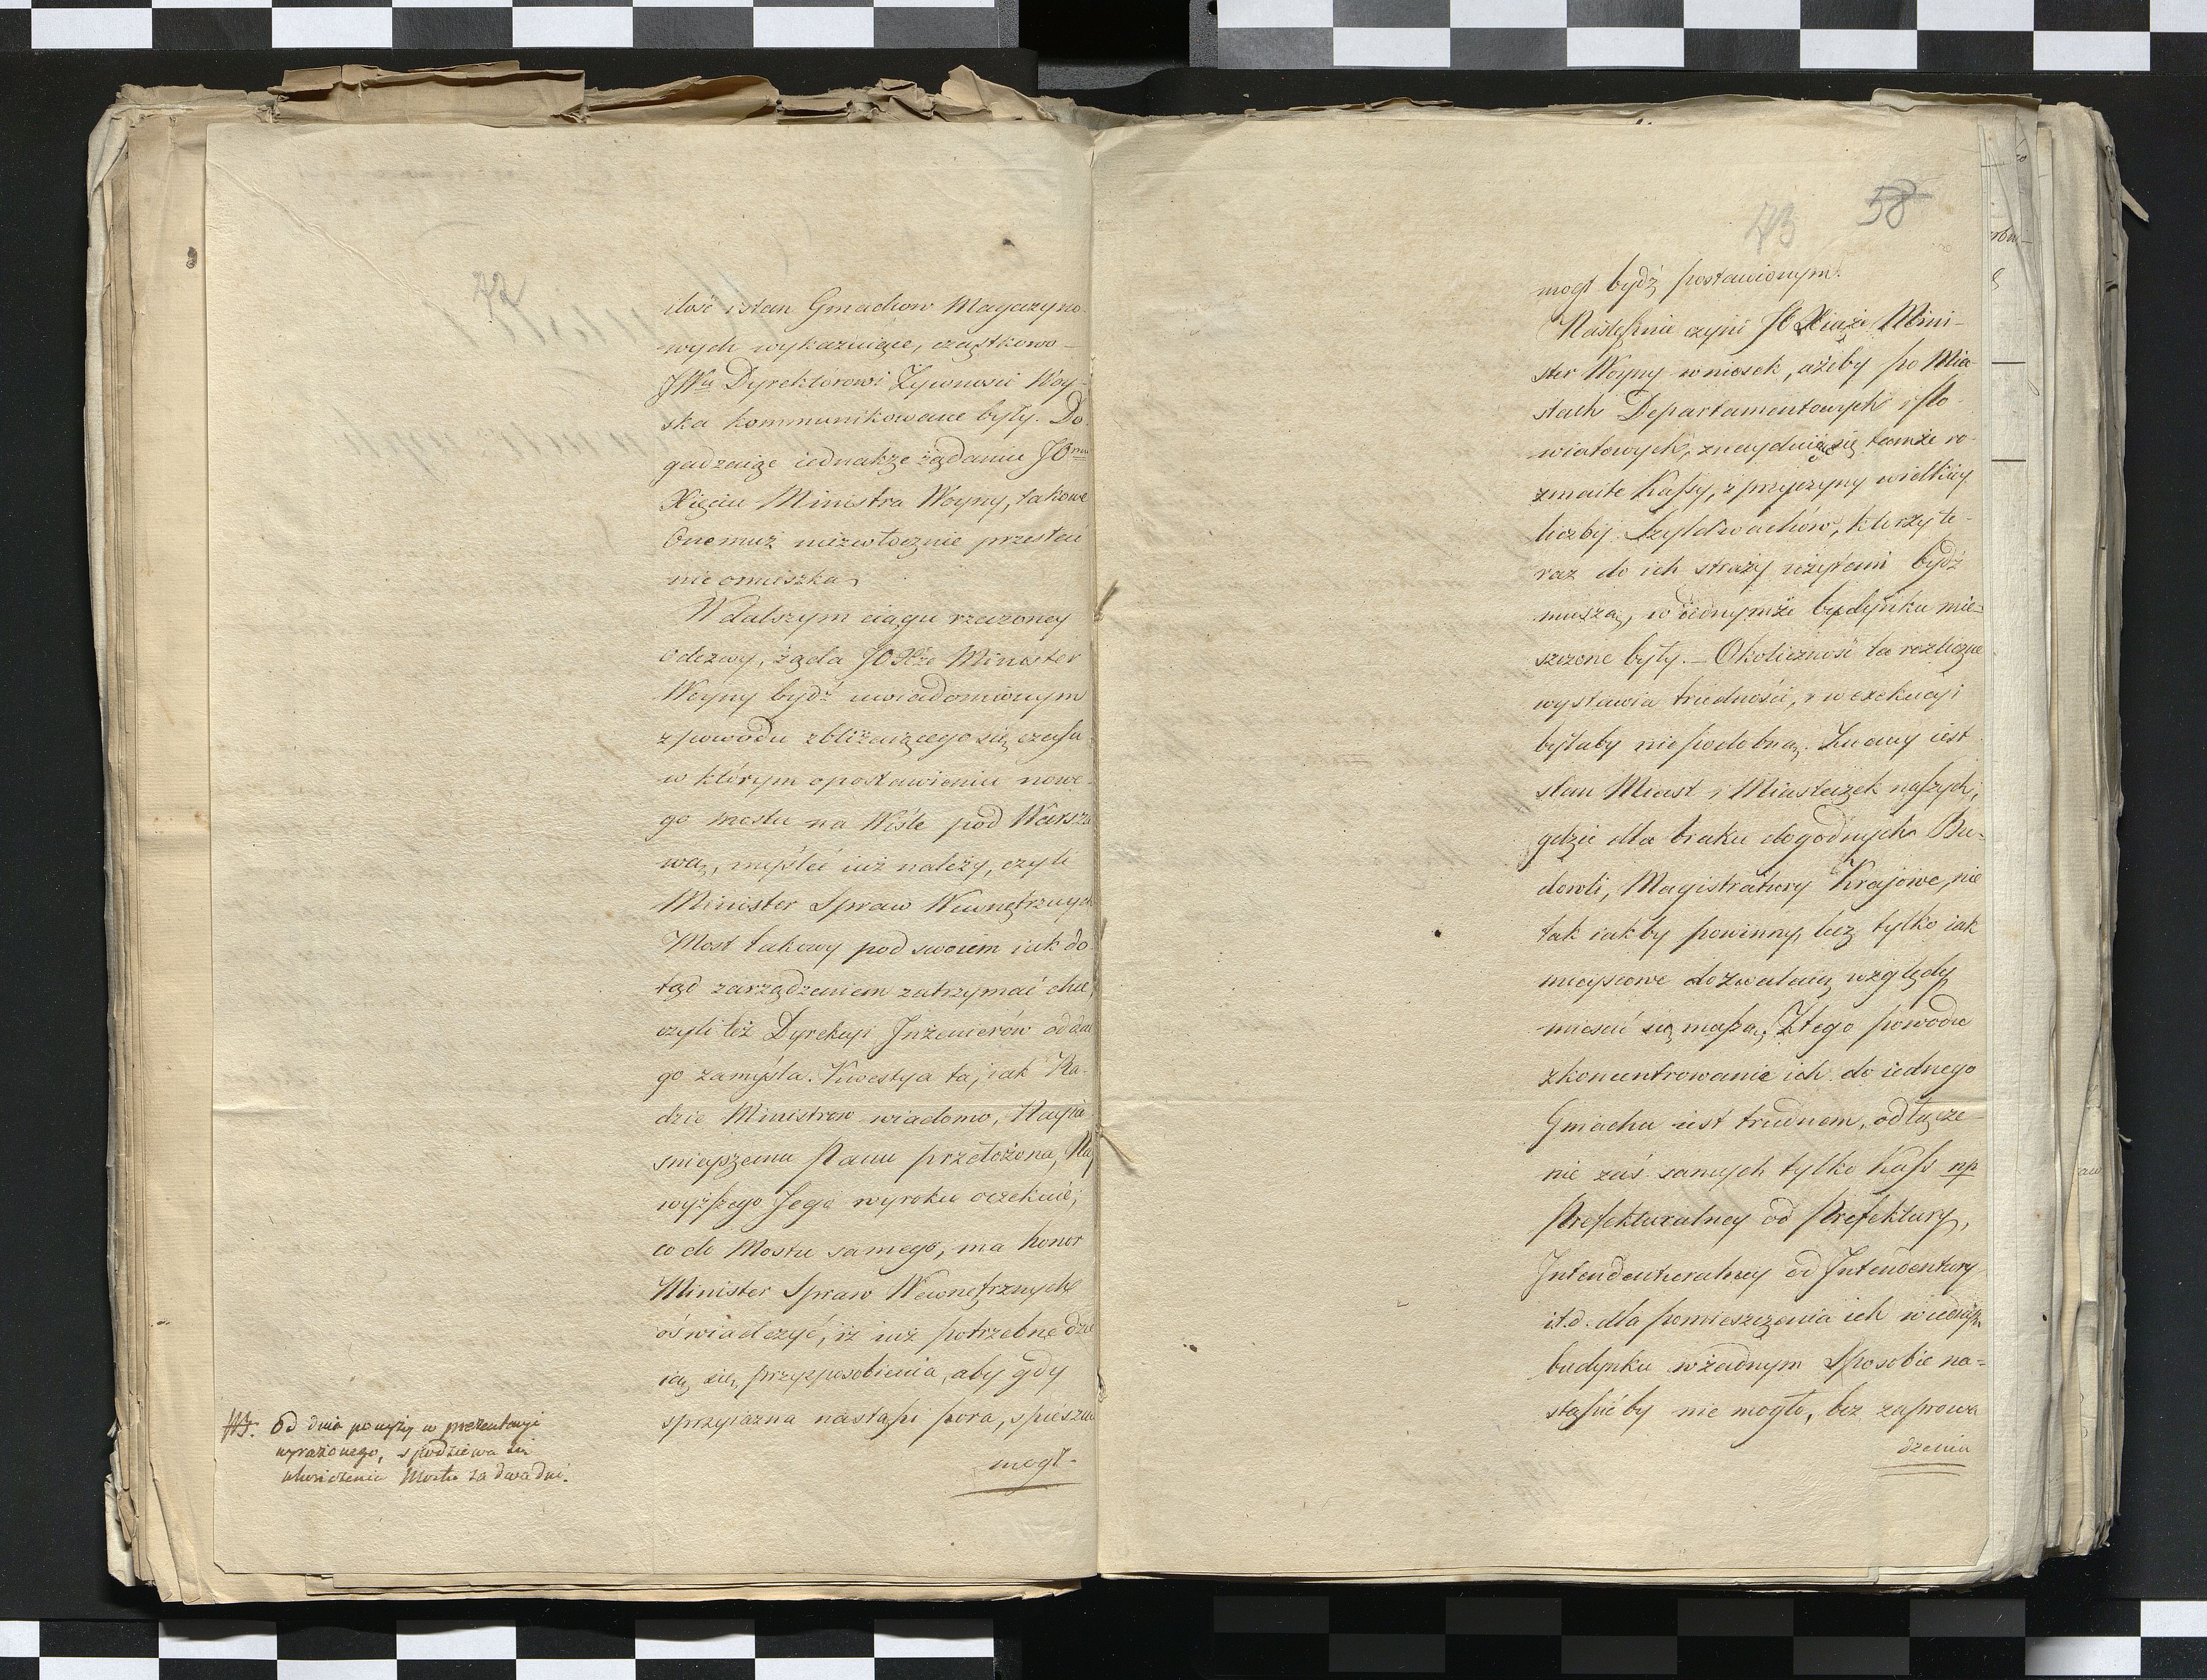 72
ilość i stan Gmachow Magazyno-
wych wykazuiące, cząstkowo
JWu Dyrektorowi Żywności Woy-
ska kommunikowane były. Do-
gadzaiąc iednakże żądaniu JOmu
Xięciu Ministra Woyny, takowe
Onemuż niezwłocznie przesłać
nie omieszka.
W dalszym ciągu rzeczoney
odezwy, żąda JOXże Minister
Woyny bydź uwiadomionym
z powodu zbliżaiącego się czasu
w którym o postawieniu nowe-
go mostu na Wiśle pod Warsza
wą, myśleć iuż należy, czyli
Minister Spraw Wewnętrznych
Most takowy pod swoiem iak do
tąd zarządzeniem zatrzymać chce,
czyli też Dyrekcyi Inżenierów oddać
go zamyśla. Kwestya ta, iak Ra-
dzie Ministrow wiadomo, Nayia
śnieyszemu Panu przełożona, Nay
wyższego Jego wyroku oczekuie;
co do Mostu samego, ma honor
Minister Spraw Wewnętrznych
oświadczyć, iż iuż potrzebne dzie
ią się przysposobienia, aby gdy
sprzyiazna nastąpi pora, spieszno
mogł.
NB. Od dnia poniżey w prezentacyi
wyrażonego, spodziewa się
ukończenia Mostu za dwa dni.
73 58
mogł bydź postawionym.
Następnie czyni JO Xiąże Mini-
ster Woyny wniosek, ażeby po Mia
stach Departamentowych i Po-
wiatowych, znayduiące się tamże ro-
zmaite Kassy, z przyczyny wielkiey
liczby Szyldwachów, którzy te-
raz do ich straży użytemi bydź
muszą, w iednymże budynku mie-
szczone były. – Okoliczność ta rozliczne
wystawia trudności, i w exekucyi
byłaby niepodobną. Znany iest
stan Miast i Miasteczek naszych,
gdzie dla braku dogodnych Bu-
dowli, Magistratury Krajowe, nie
tak iakby powinny, lecz tylko iak
mieyscowe dozwalaią względy
mieścić się muszą. Z tego powodu
zkoncentrowanie ich do iednego
Gmachu iest trudnem, odłącze-
nie zaś samych tylko Kass np
Prefekturalney od Prefektury,
Intendenturalney od Intendentury
i t.d. dla pomieszczenia ich w iednym
budynku w żadnym Sposobie na=
stąpić by nie mogło, bez zaprowa
dzenia